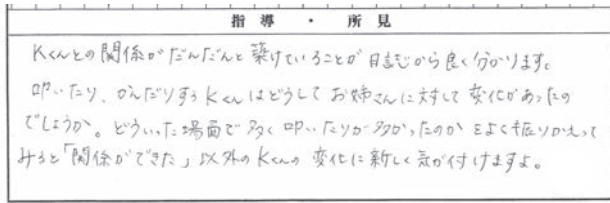 指導・所見
Kくんとの関係がだんだんと築けていることが日誌から良く分かります。
叩いたり、かんだりするKくんはどうしてお姉さんに対して変化があったの
でしょうか。どういった場面で多く叩いたりが多かったのかをよく振りかえって
みると「関係ができた」以外のKくんの変化に新しく気が付けますよ。